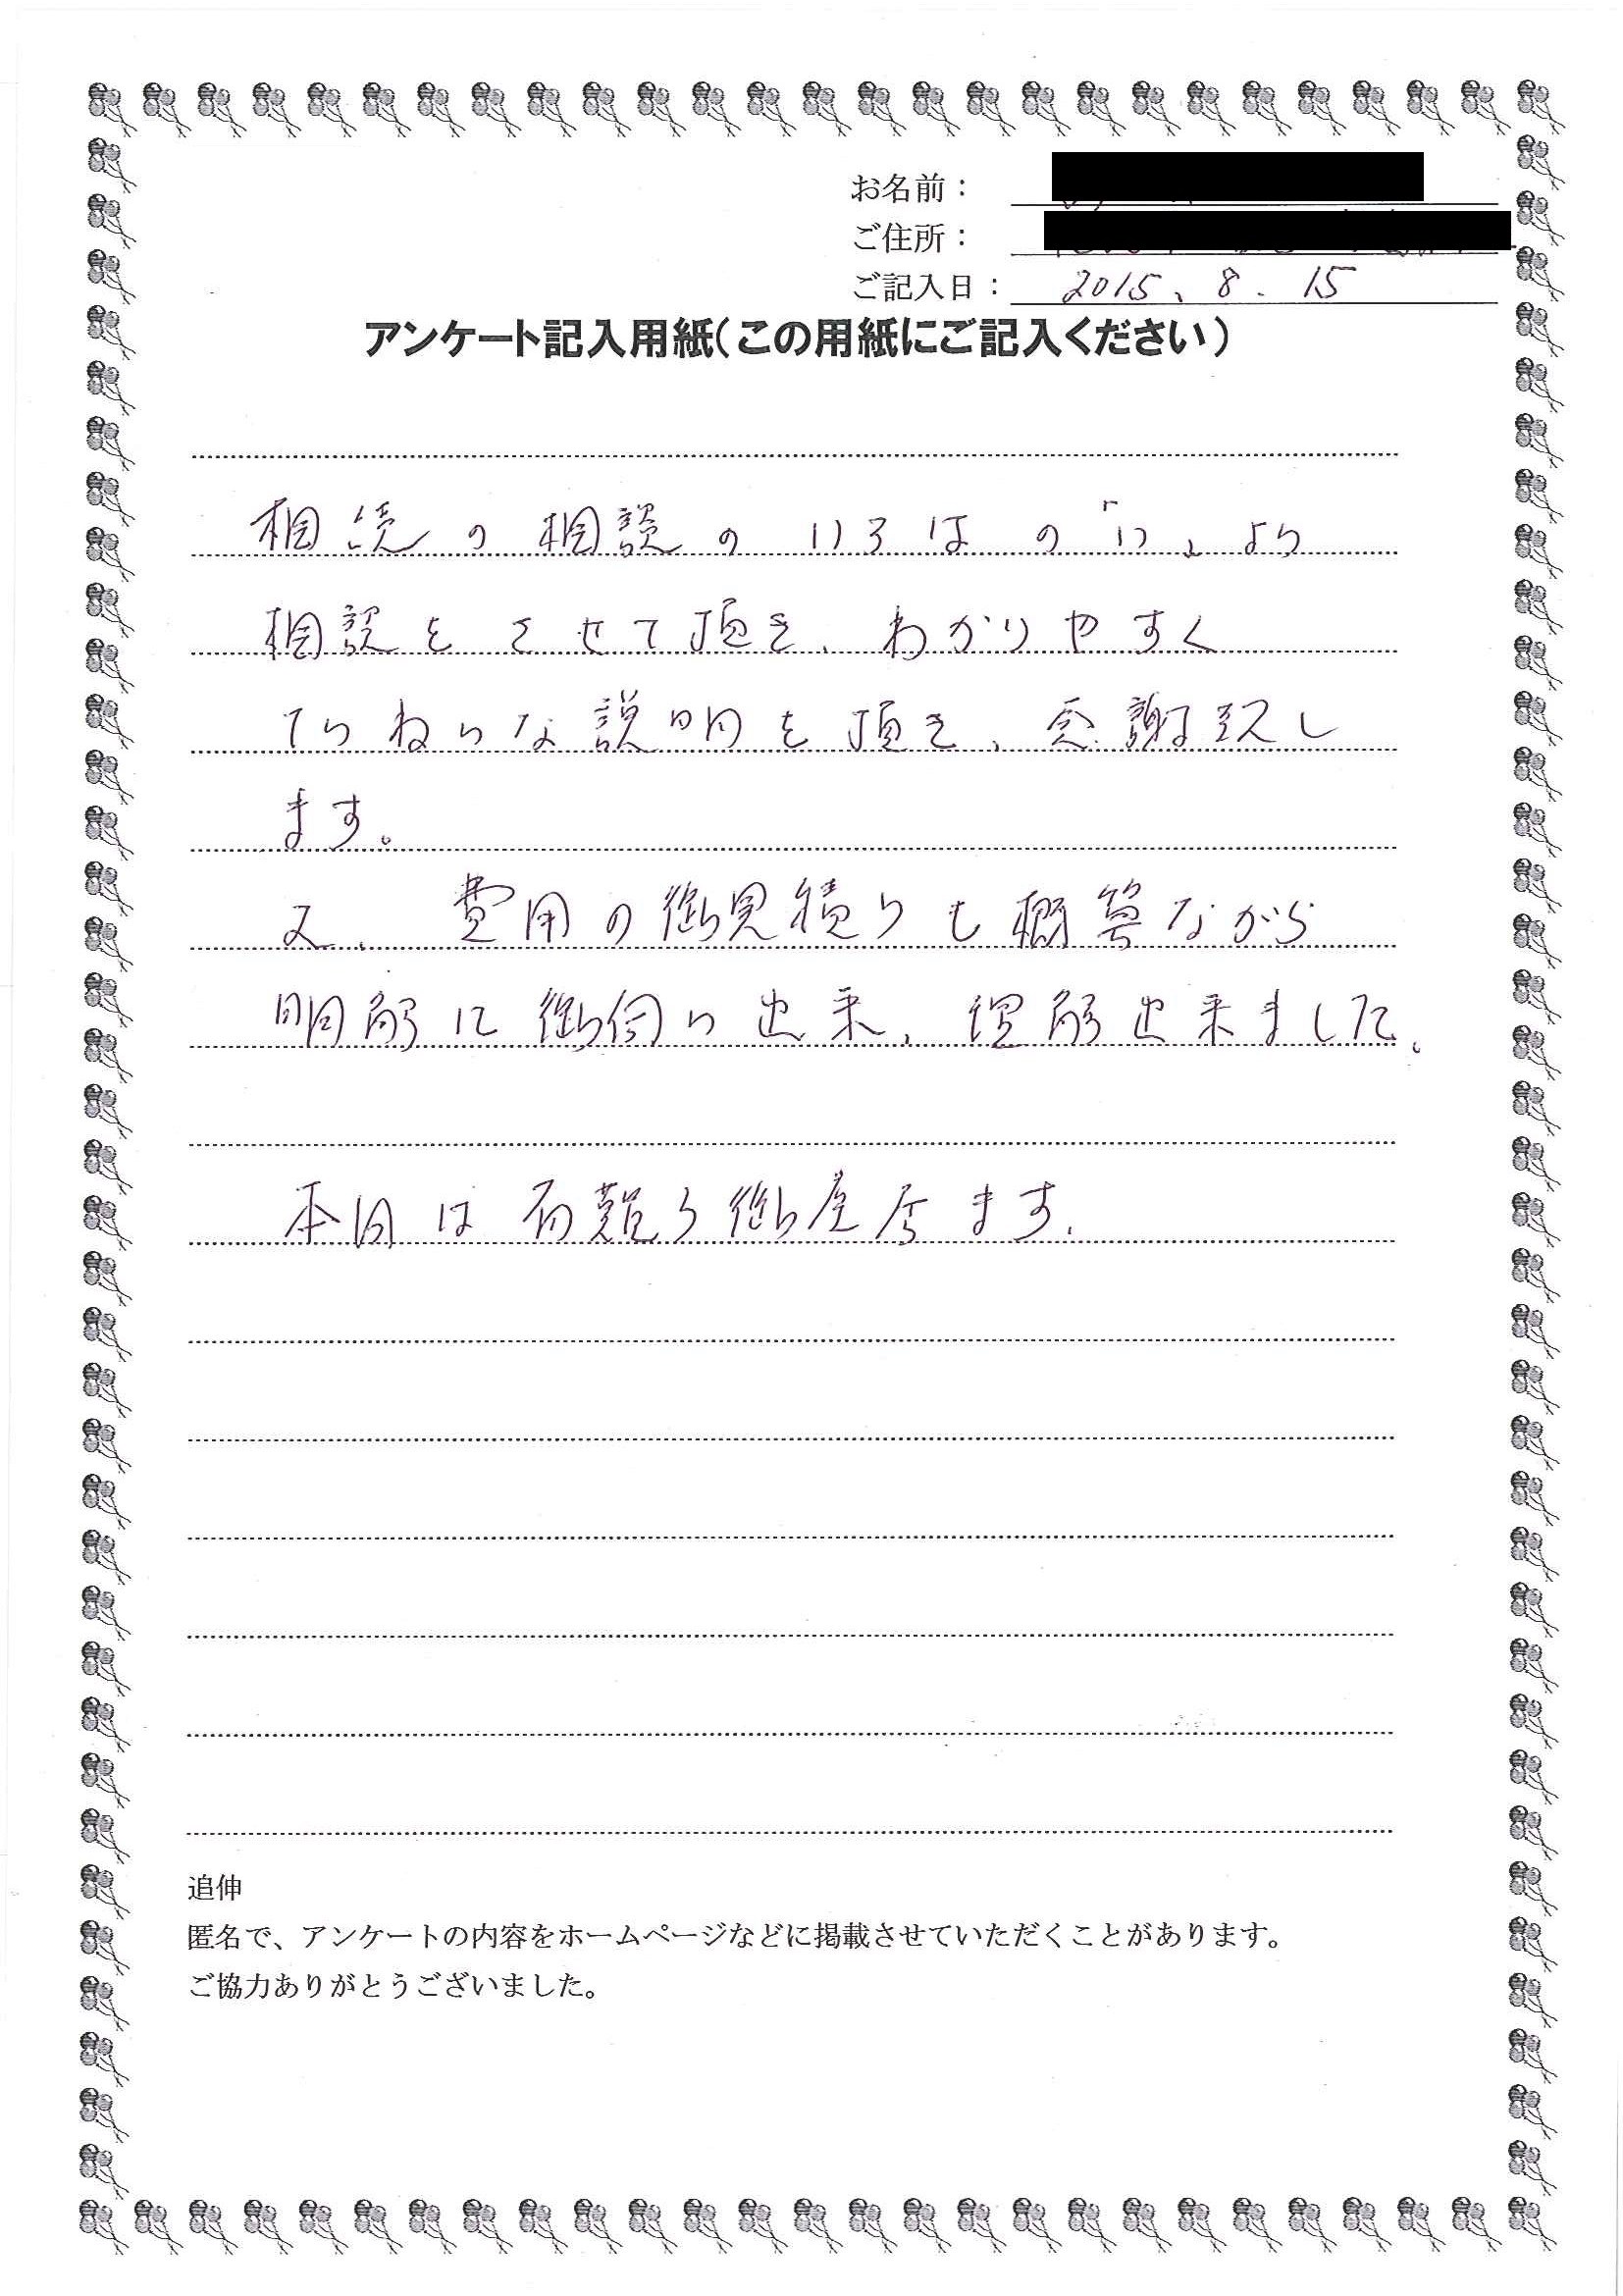 お名前：
ご住所：
ご記入日： 2015、8.15
アンケート記入用紙(この用紙にご記入ください)
相続の相談のいろはの「い」より
相談をさせて頂き、わかりやすく
ていねいな説明を頂き、感謝致し
ます。
又、費用の御見積りも概算ながら
明解に御伺い出来、理解出来ました。
本日は有難う御座居ます。
追伸
匿名で、アンケートの内容をホームページなどに掲載させていただくことがあります。
ご協力ありがとうございました。